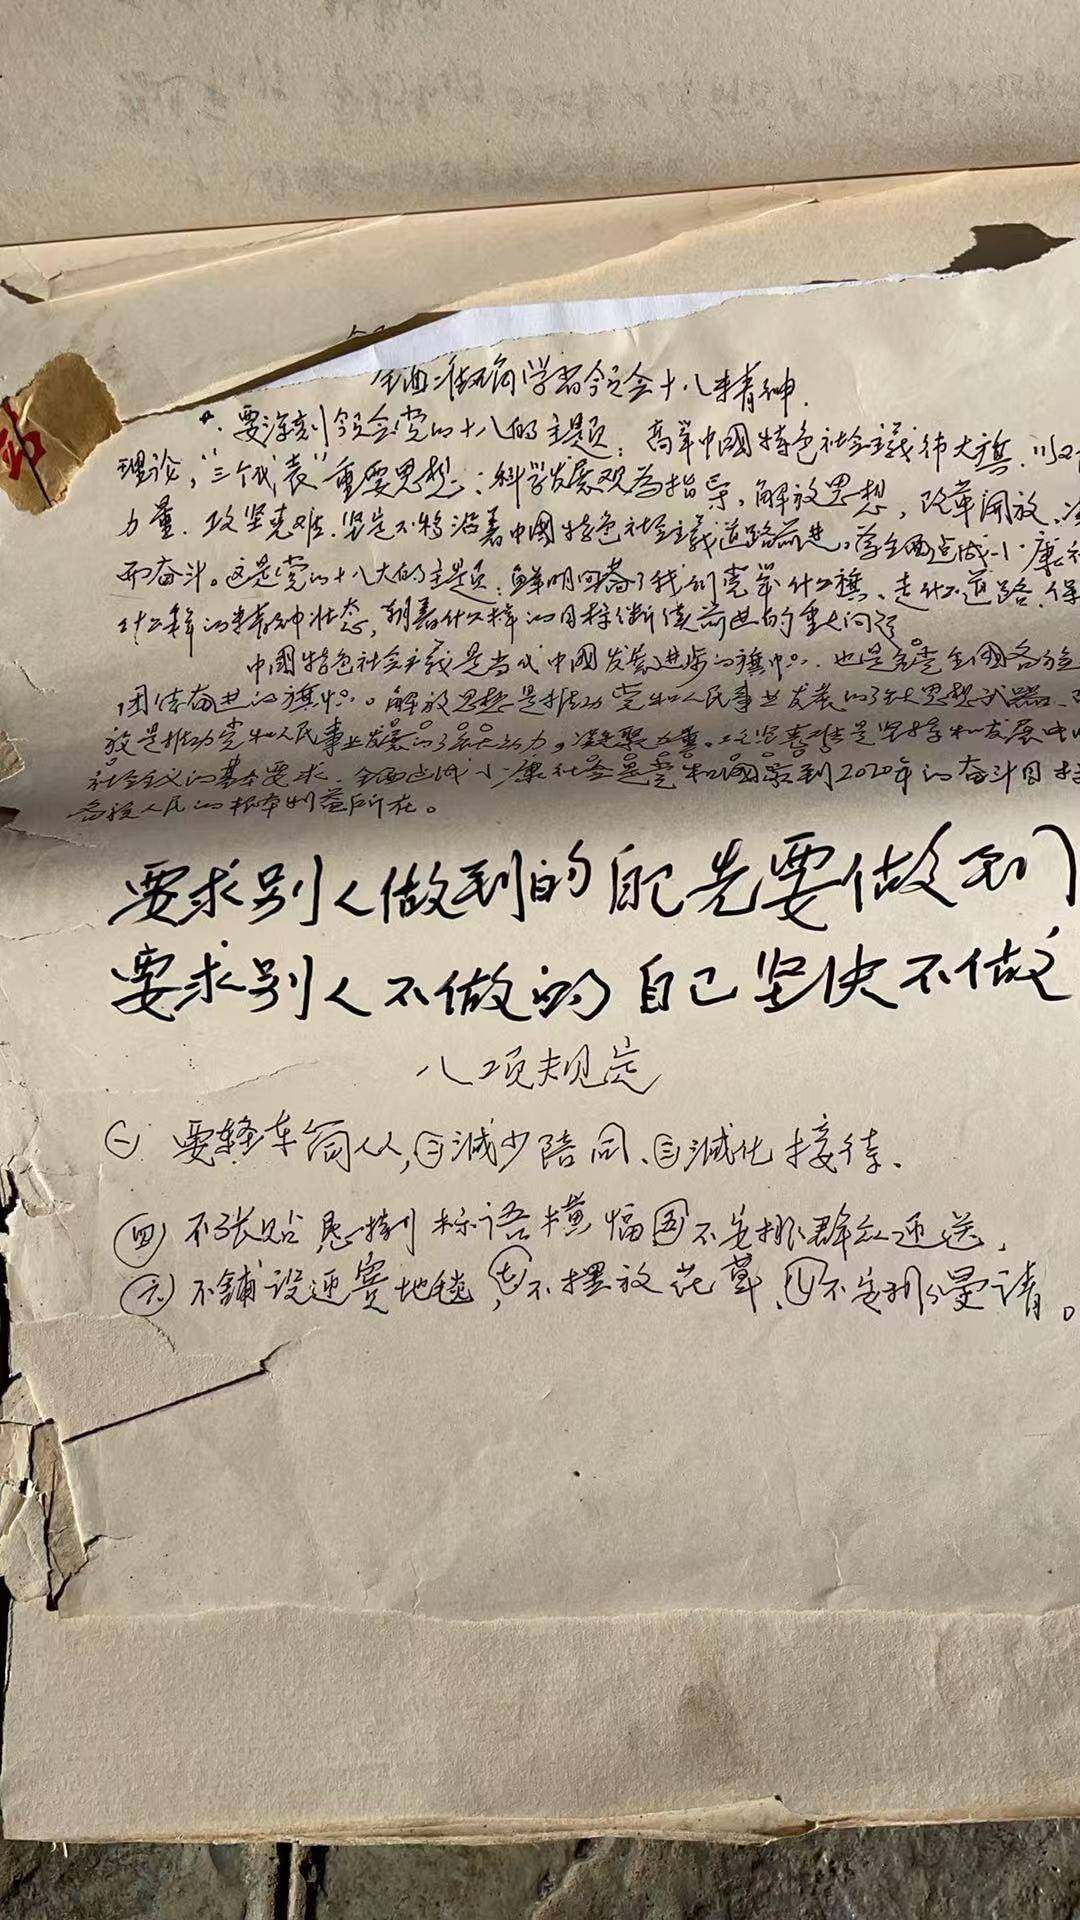 全面准确学习领会十八精神.
要深刻领会党的十八的主题：高举中國特色社会主義伟大旗.以
理论,"三个代表"重要思想;科学发展观为指导,解放思想,改革開放,
力量.攻坚克难.坚定不移沿着中國特色社会主義道路前进,为全面建成小康社
而奋斗。这是党的十八大的主题,鲜明回答了我们党举什么旗、走什么道路.保
什么样的精神状态,朝着什么样的目标継续前进的重大问题
中國特色社会主義是当代中國发展进步的旗帜.也是全党全國各族
团结奋进的旗帜。解放思想是推动党和人民事业发展的强大思想武器、
放是推动党和人民事业发展的强大动力,凝聚力量.攻坚克难是坚持和发展中
社会主义的基本要求.全面建成小康社会是党和國家到2020年的奋斗目标
各族人民的根本利益所在。
要求别人做到的自己先要做到
要求别人不做的自己坚决不做
八项规定
㊀ 要轻车简从,㊁减少陪同、㊂减化接待、
㊃ 不张贴悬掛标语横幅㊄不安排群众迎送,
㊅ 不鋪设迎宾地毯,㊆不摆放花草、㊇不安排宴请。